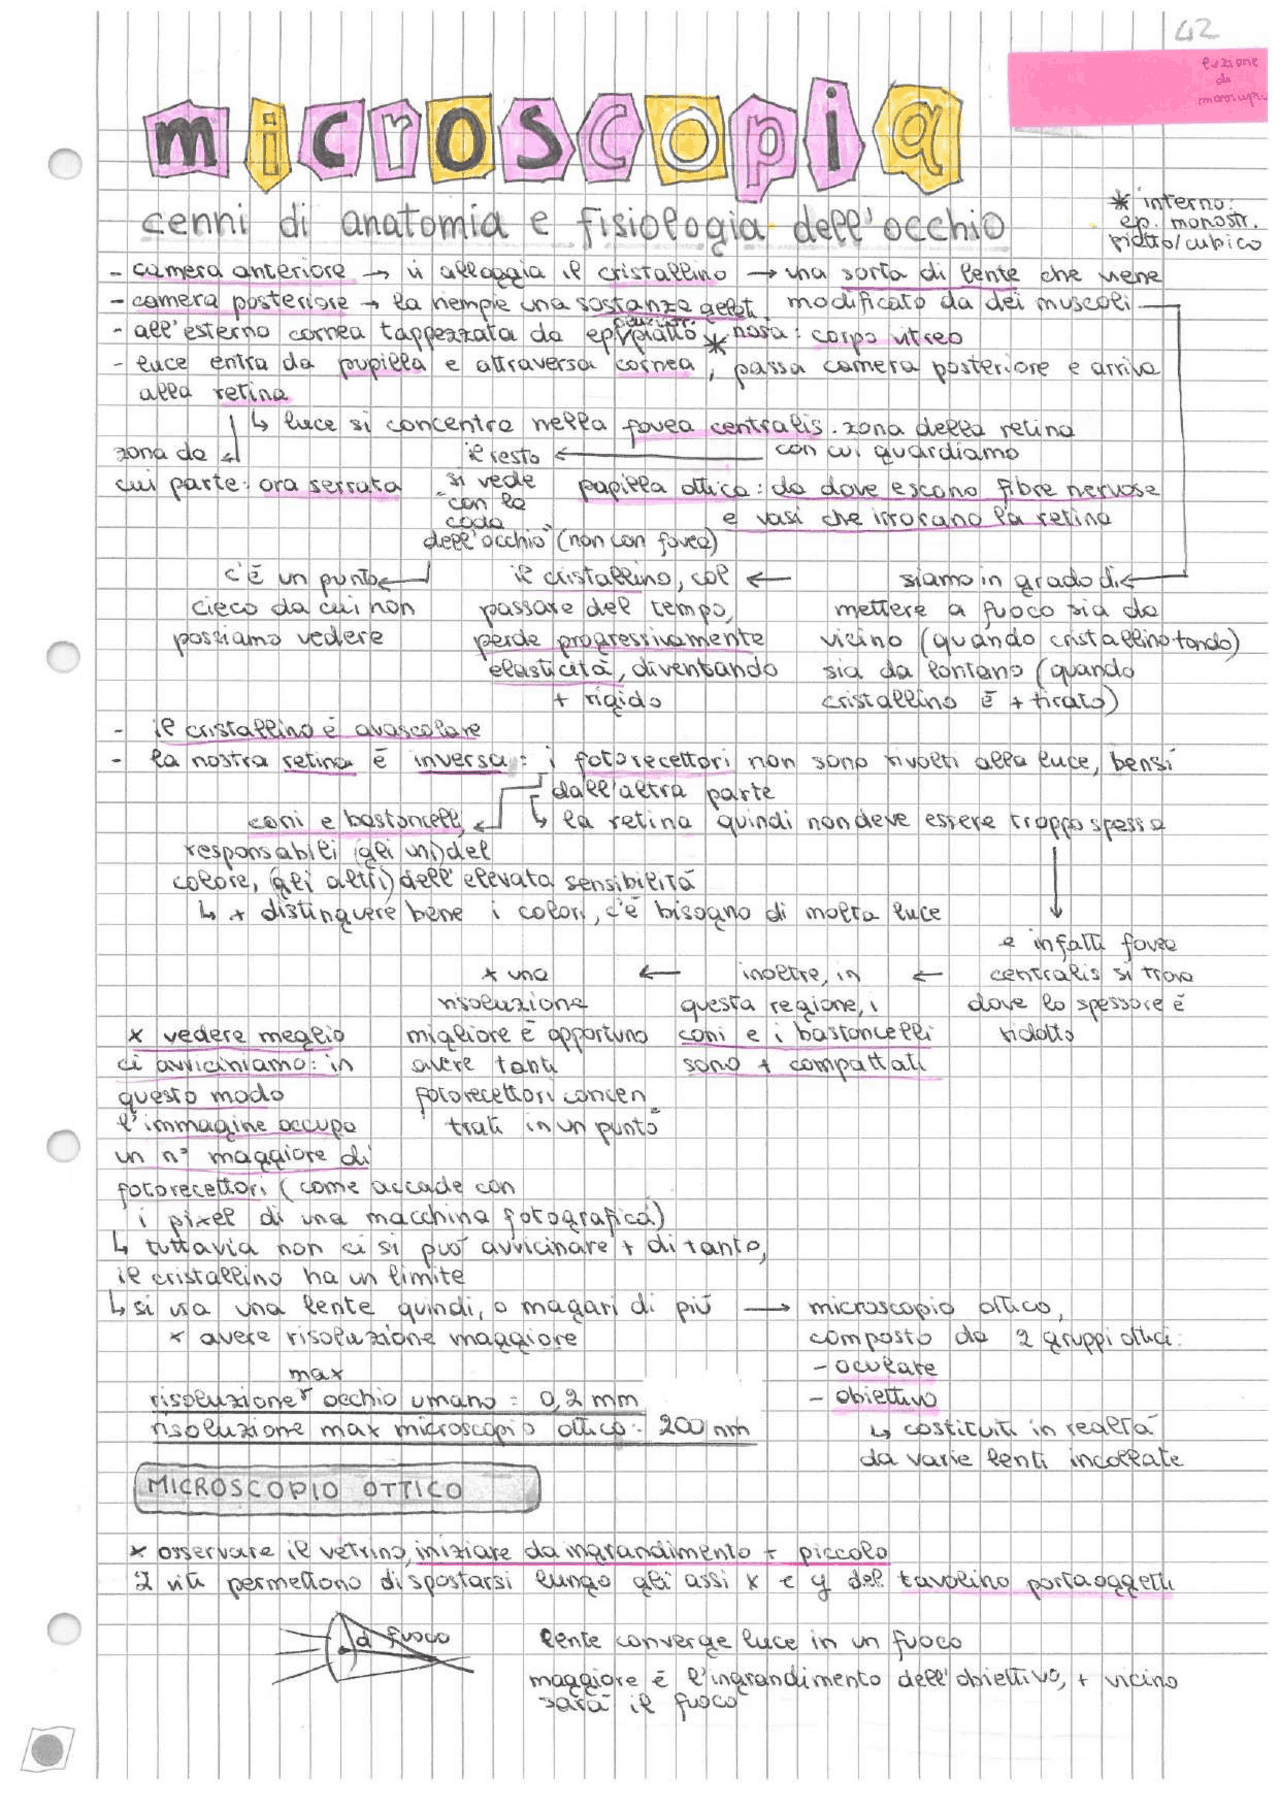 42
lezione
di
microscopia
cenni di anatomia e fisiologia dell'occhio
* interno:
ep. monostr.
piatto/cubico
- camera anteriore → vi alloggia il cristallino → una sorta di lente che viene
- camera posteriore → la riempie una sostanza gelati modificato da dei muscoli
- all'esterno cornea tappezzata da ep. piatto * nosa: corpo vitreo
- luce entra da pupilla e attraversa cornea, passa camera posteriore e arriva
alla retina
↳ luce si concentra nella fovea centralis. zona della retina
con cui guardiamo
zona da
cui parte: ora serrata
il resto
si vede
"con la
coda
dell'occhio" (non con fovea)
papilla ottica: da dove escono fibre nervose
e vasi che irrorano la retina
c'è un punto
cieco da cui non
possiamo vedere
il cristallino, col ←
passare del tempo,
perde progressivamente
elasticità, diventando
+ rigido
siamo in grado di
mettere a fuoco sia da
vicino (quando cristallino tondo)
sia da lontano (quando
cristallino è + tirato)
- il cristallino è avascolare
- la nostra retina è inversa: i fotorecettori non sono rivolti alla luce, bensì
dall'altra parte
↳ la retina quindi non deve essere troppo spessa
coni e bastoncelli
responsabili (gli uni) del
colore, (gli altri) dell'elevata sensibilità
↳ x distinguere bene i colori, c'è bisogno di molta luce
e infatti fovea
centralis si trova
dove lo spessore è
ridotto
← inoltre, in
questa regione, i
coni e i bastoncelli
sono + compattati
← x una
risoluzione
migliore è opportuno
avere tanti
fotorecettori concen
trati in un punto
x vedere meglio
ci avviciniamo: in
questo modo
l'immagine occupa
un n° maggiore di
fotorecettori (come accade con
i pixel di una macchina fotografica)
↳ tuttavia non ci si può avvicinare + di tanto,
il cristallino ha un limite
↳ si usa una lente quindi, o magari di più → microscopio ottico,
x avere risoluzione maggiore
composto da 2 gruppi ottici:
- oculare
- obiettivo
↳ costituiti in realtà
da varie lenti incollate
max
risoluzione occhio umano = 0,2 mm
risoluzione max microscopio ottico: 200 nm
MICROSCOPIO OTTICO
x osservare il vetrino, iniziare da ingrandimento + piccolo
2 viti permettono di spostarsi lungo gli assi x e y del tavolino portaoggetti
d fuoco
lente converge luce in un fuoco
maggiore è l'ingrandimento dell'obiettivo, + vicino
sarà il fuoco